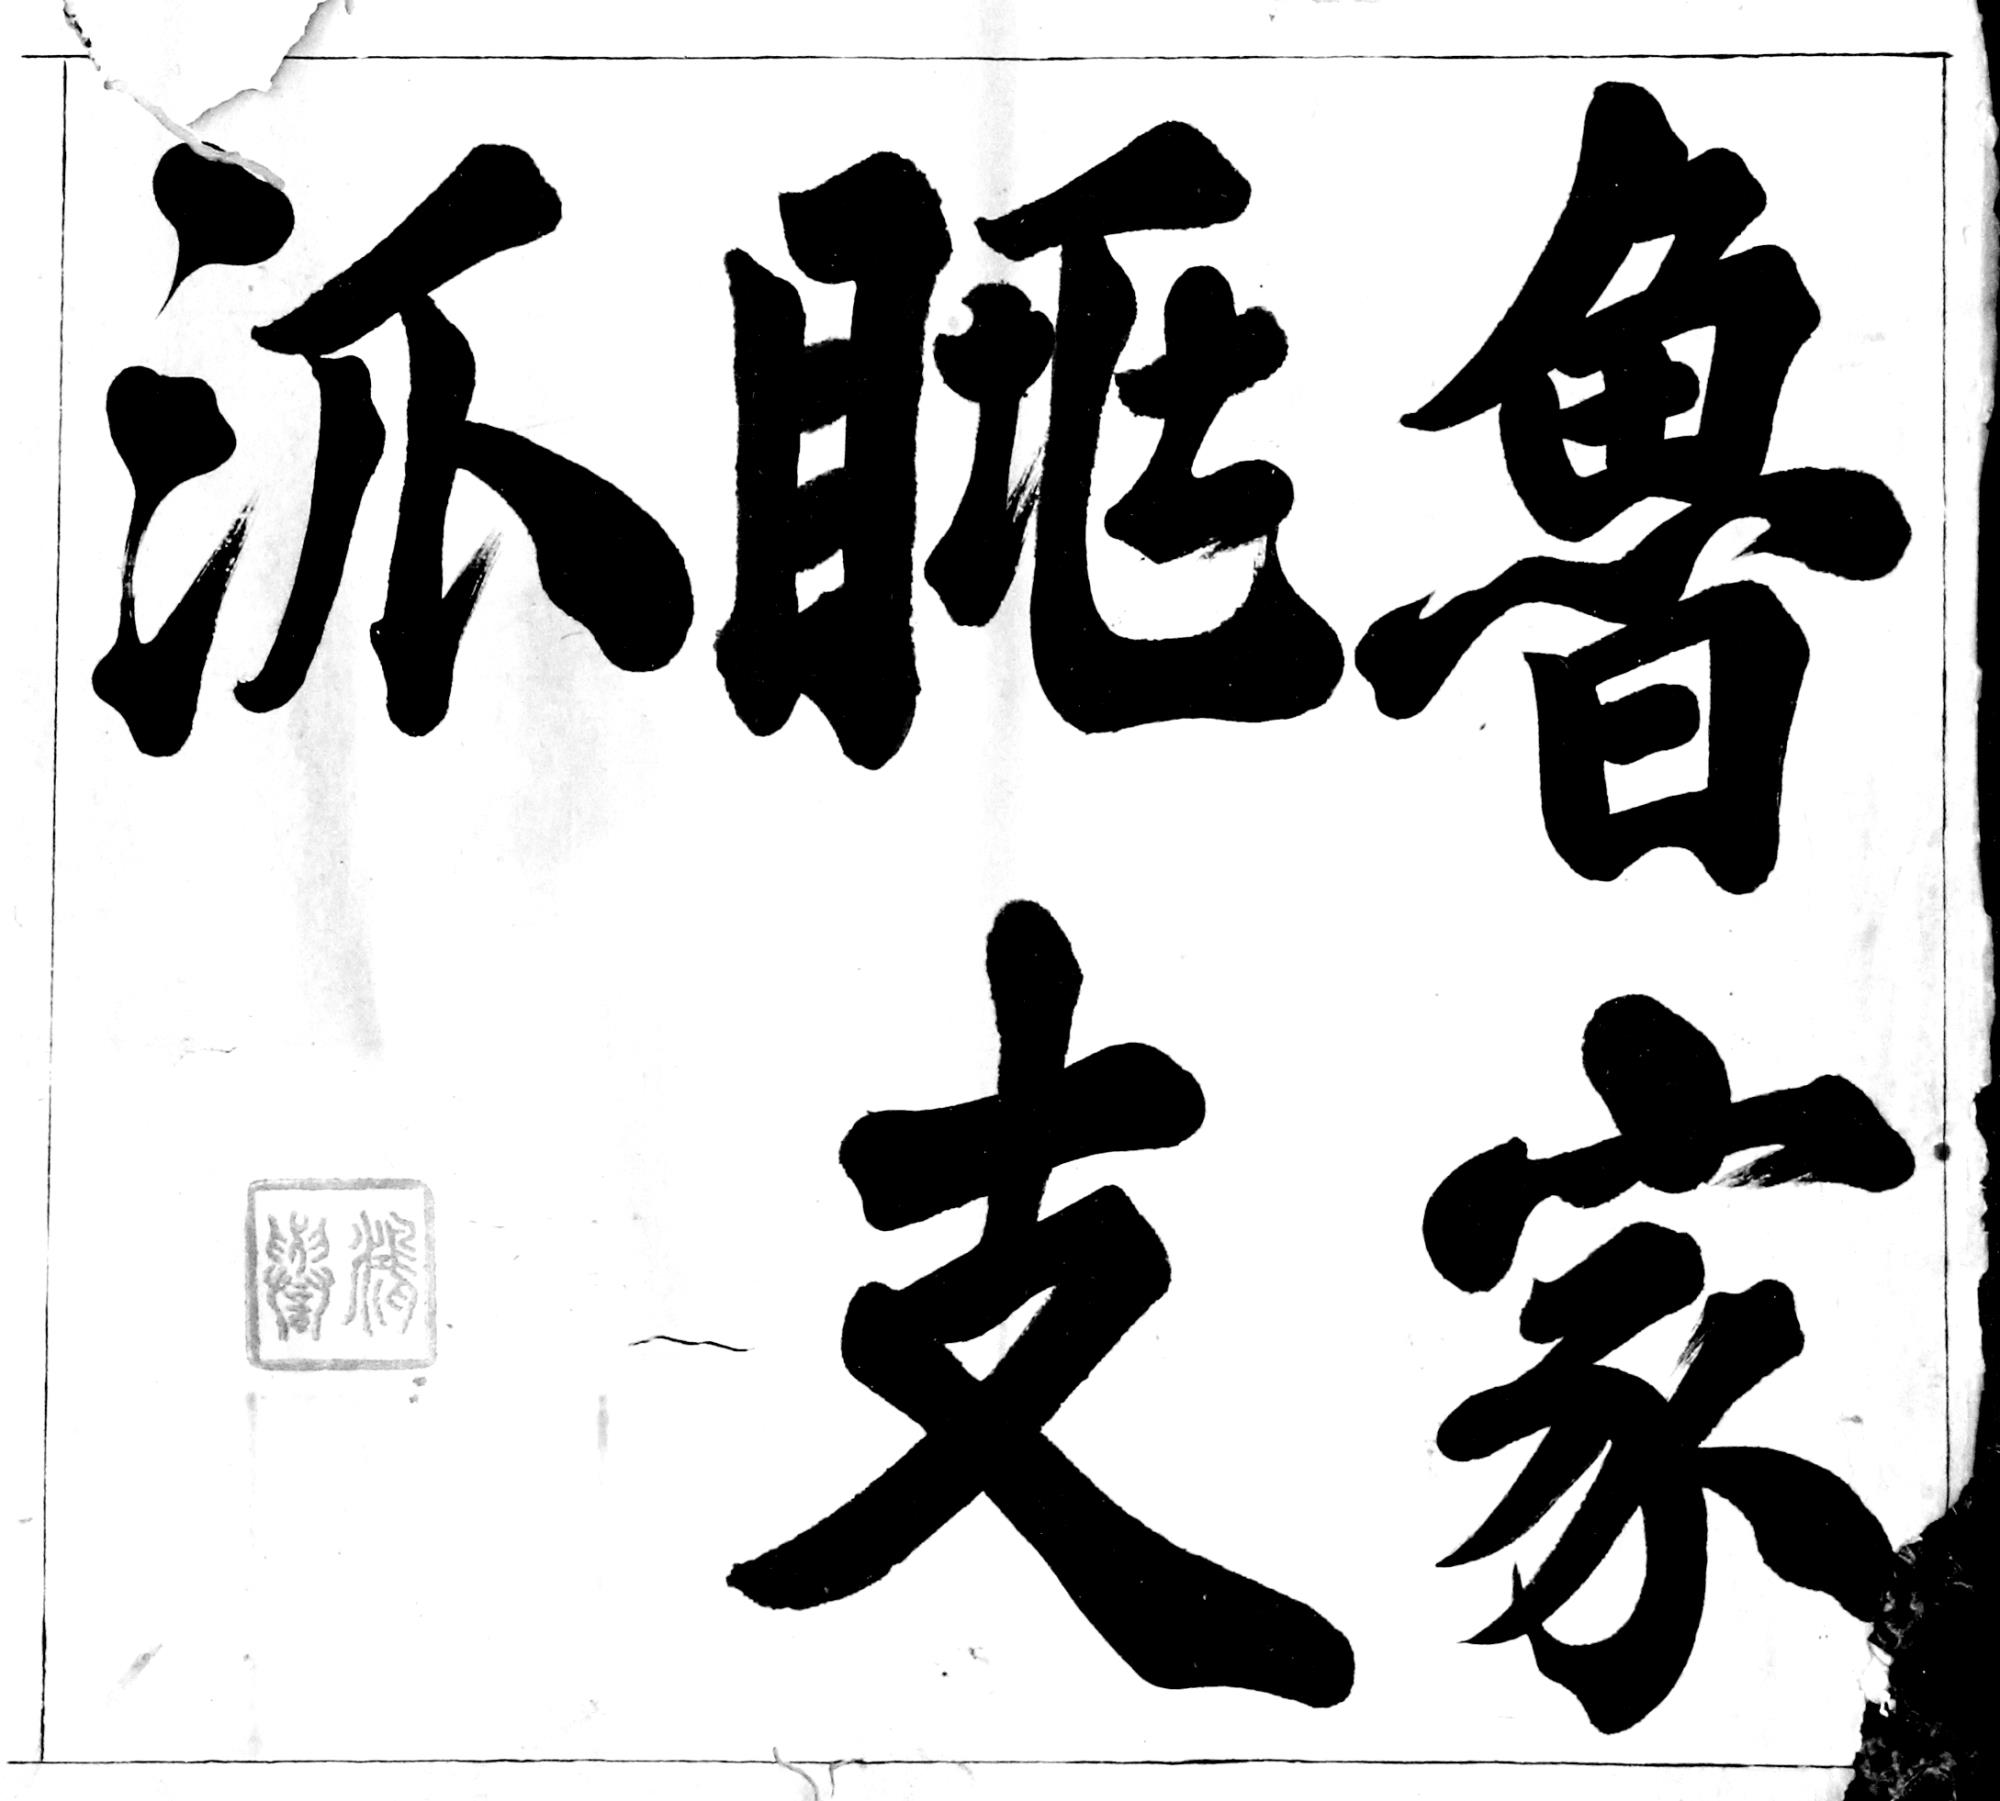 魯家
支
派